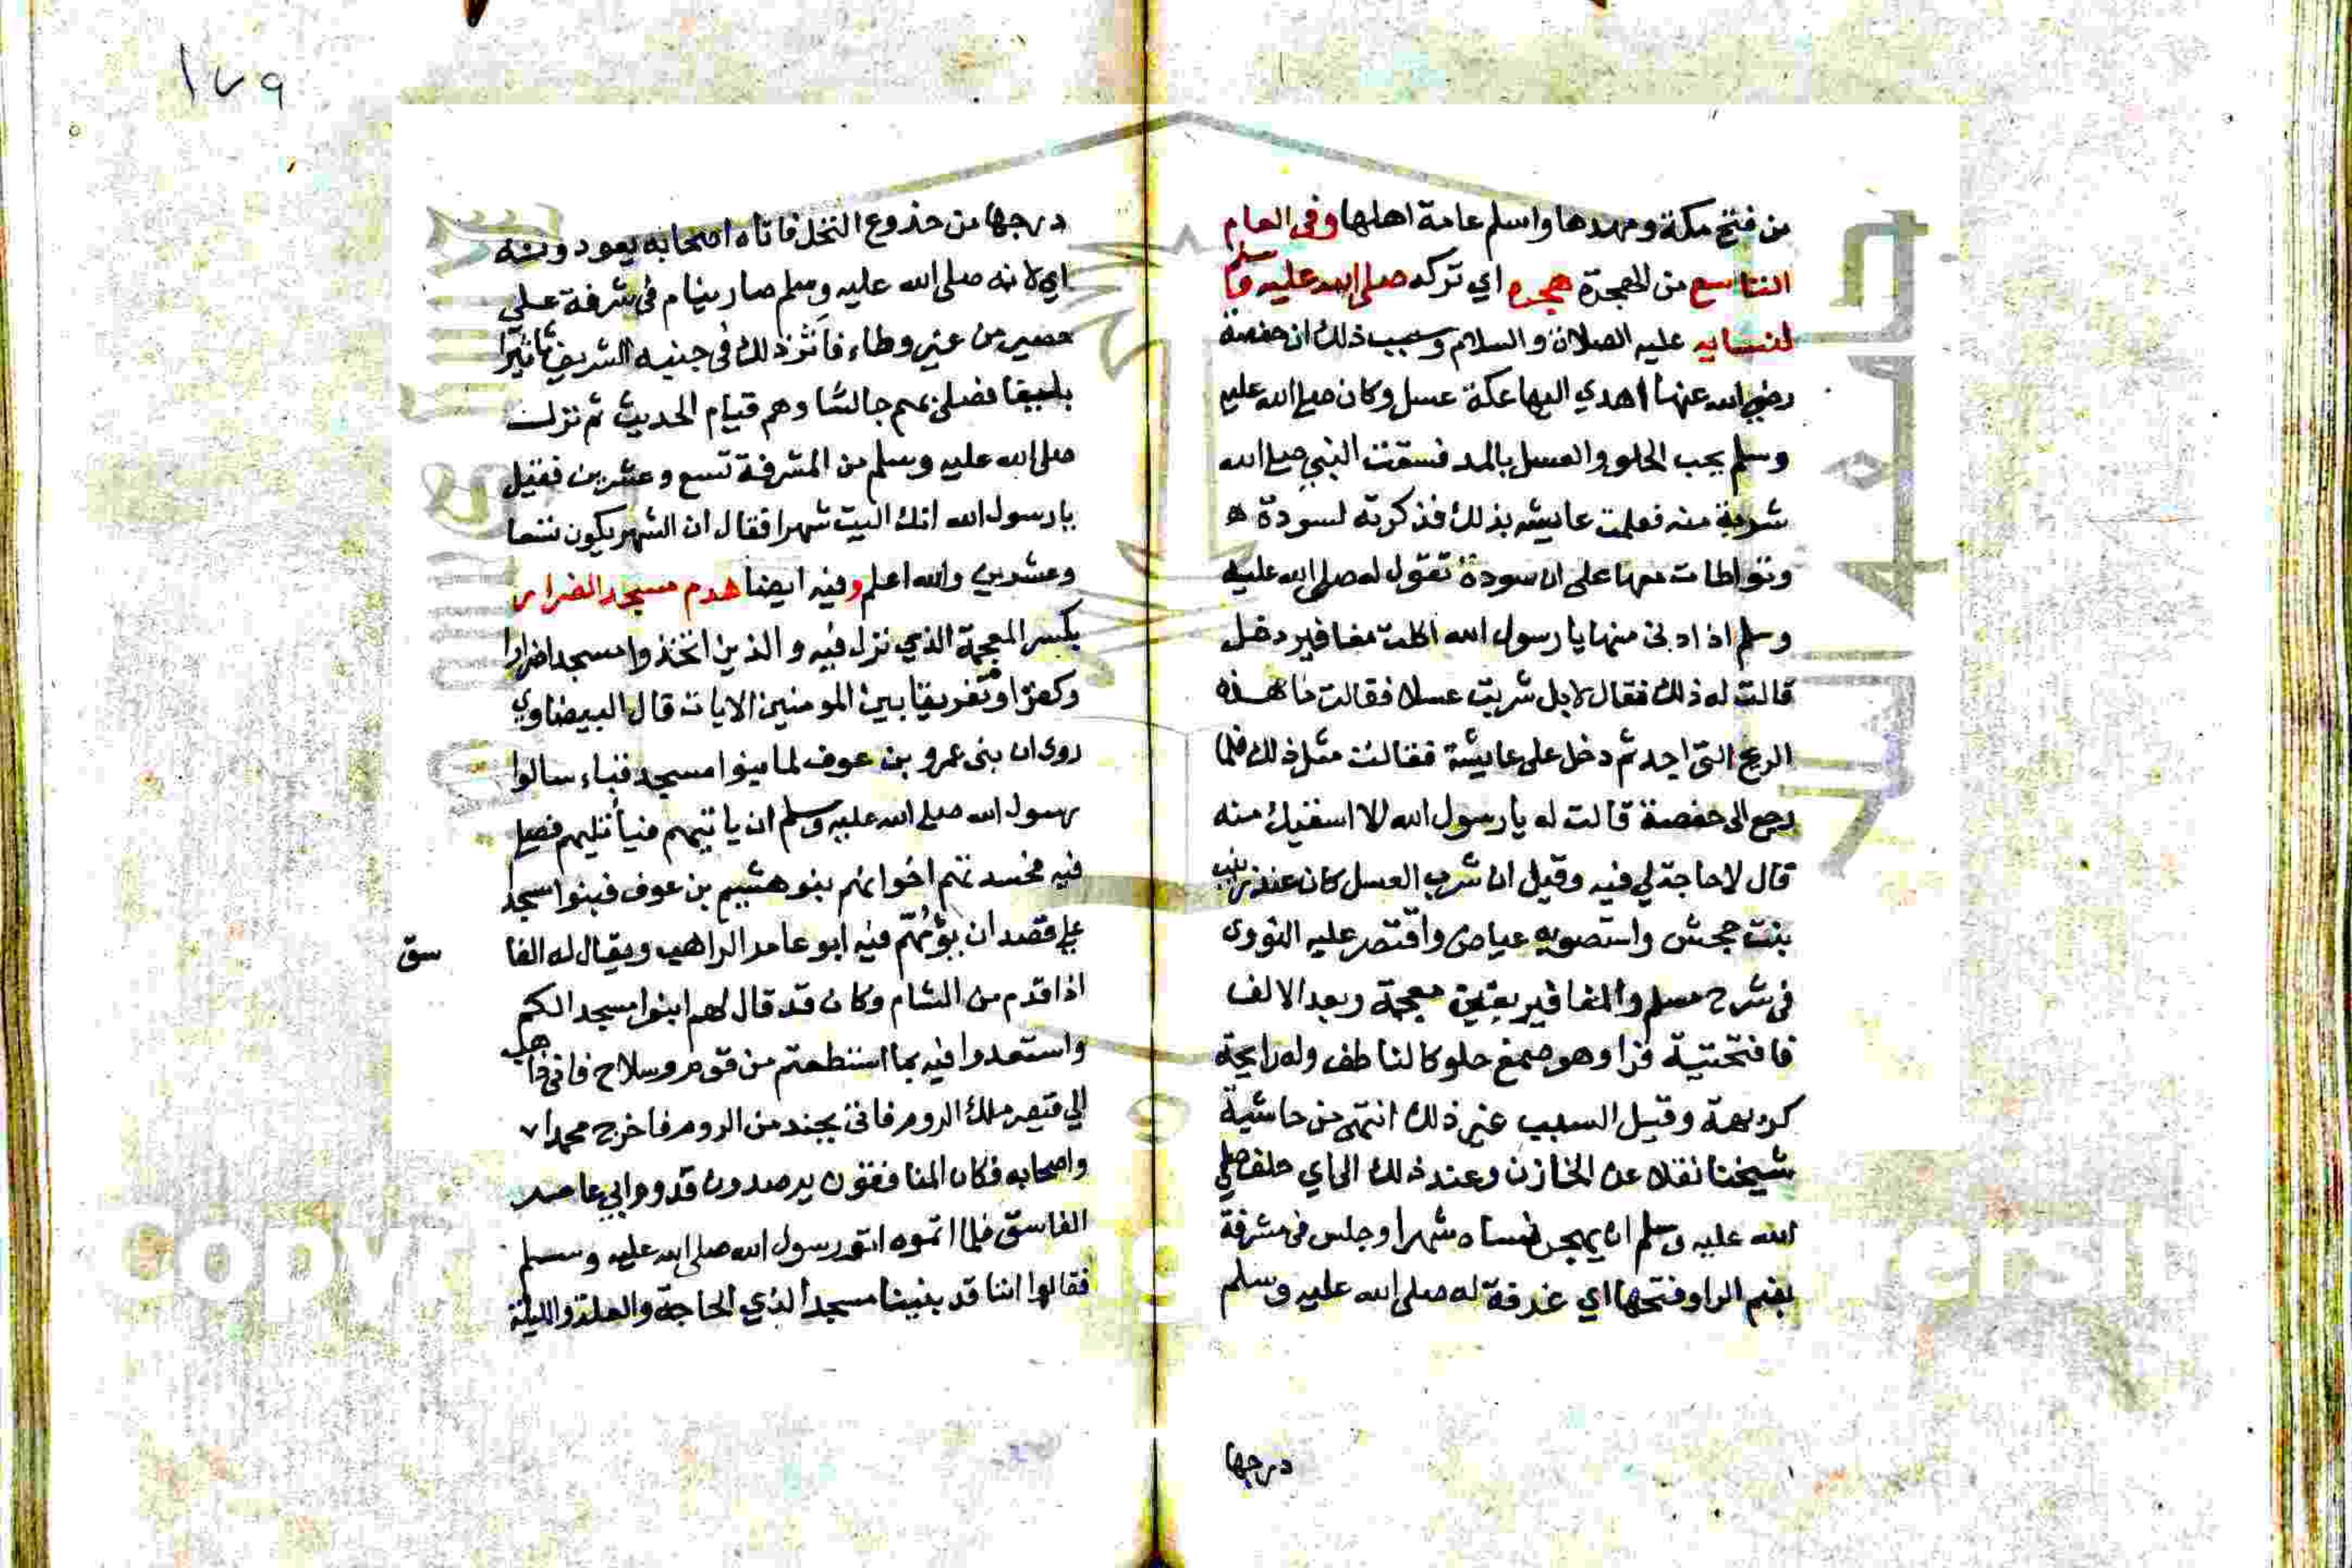 من فتح مكة ومهدها واسلم عامة اهلها وفي العام
التاسع من الهجرة هجره اي تركه صلى الله عليه وسلم
لنسايه عليه الصلاة والسلام وسبب ذلك ان حفصة
رضي الله عنها اهدي اليها عكة عسل وكان صلى الله عليه
وسلم يحب الحلو والعسل بالمد فسقت النبي صلى الله
شربة منه فعلمت عايشه بذلك فذكرته لسودة
وتواطات معها على ان سودة تقول له صلى الله عليه
وسلم اذا دنى منها يا رسول الله اكلت مغافير دخل
قالت له ذلك فقال لا بل شربت عسلا فقالت ما هذه
الريح التي اجد ثم دخل على عايشة فقالت مثل ذلك فلما
رجع الى حفصة قالت له يا رسول الله الا اسقيك منه
قال لا حاجة لي فيه وقيل ان شرب العسل كان عند زينب
بنت جحش واستصوبه عياض واقتصر عليه النووي
في شرح مسلم والمغافير بغين معجمة وبعد الالف
فا فتحتية فرا وهو صمغ حلو كالناطف وله رايحة
كريهة وقيل السبب غير ذلك انتهى من حاشية
شيخنا نقلا عن الخازن وعند ذلك الجاي حلف صلى
الله عليه وسلم ان يهجر نساه شهرا وجلس في مشرفة
بضم الرا وفتحها اي غرفة له صلى الله عليه وسلم
درجها
١٧٩
درجها من جذوع النخل فاتاه اصحابه يعودونه
اي لانه صلى الله عليه وسلم صار ينام في شرفة على
حصير من غير وطاء فاثر ذلك في جنبه الشريف تاثيرا
بليغا فصلى بهم جالسا وهم قيام الحديث ثم نزلت
صلى الله عليه وسلم من المشرفة تسع وعشرين فقيل
يا رسول الله انك اليت شهرا فقال ان الشهر يكون تسعا
وعشرين والله اعلم وفيه ايضا هدم مسجد الضرار
بكسر المعجمة الذي نزل فيه والذين اتخذوا مسجدا ضرارا
وكفرا وتفريقا بين المومنين الايات قال البيضاوي
روى ان بنى عمرو بن عوف لما بنوا مسجد قباء سالوا
رسول الله صلى الله عليه وسلم ان ياتيهم فصلى
فيه فحسدتهم اخوانهم بنو بن عوف فبنوا مسجد
على قصد ان يؤمهم فيه ابو عامر الراهب ويقال له الفا
سق
اذا قدم من الشام وكان قد قال لهم ابنوا مسجدا لكم
واستعدوا فيه بما استطعتم من قوة وسلاح فاني ذاهب
الي قيصر ملك الروم فاتى بجند من الروم فاخرج محمدا
واصحابه فكان المنافقون يرصدون قدوم ابي عامر
الفاسق فلما اتموه اتو رسول الله صلى الله عليه وسلم
فقالوا اننا قد بنينا مسجدا لذي الحاجة والعلة والليلة